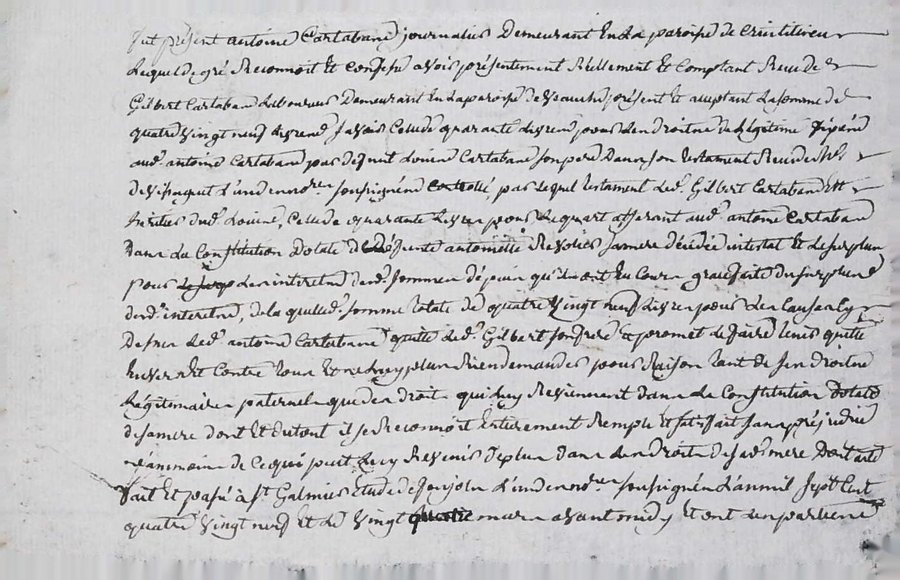 fut présent antoine Cartabane journalier Demeurant En La paroise de
Lequel de gré Reconnoit Et Confesse avoir présentement Réellement Et Comptant Receu de
Gilbert Cartaban Laboureur Demeurant En Laparoise de Veauche présent Et acceptant Lasomme de
quatre Vingt neuf Livres Savoir Celle de quarante Livres pour Les Droits De Légitime
aud. antoine Cartaban par deffunt Cartaban son pere Dans son testament Receu
L'un des no.res soussignés Controllé, par Lequel testament Led. Gilbert Cartaban Est
héritier dud. Celle de quarante Livres pour Lequart afferant aud. antoine Cartaban
Dans La Constitution Dotale de deffunte antoinette Samere décédée intestat Et Lesurplus
pour Les interets desd. Sommes qui ont Eu Cours grace faite du surplus
desd. interets, de la quelle d. somme totale de quatre Vingt neuf Livres pour Les Causes
Dessus Led. antoine Cartabane quitte Led. Gilbert son frere Et promet Le faire tenir quitte
Envers Et Contre tous Et ne Luy plus Rien demander pour Raison tant de Ses Droits
Légitimaires paternels que des Droits qui Luy Reviennent dans La Constitution Dotale
desamere dont Et dutout il se Reconnoit Entierement Rempli Et satisfait sans préjudice
néanmoins de Ce qui peut Luy Revenir De plus dans Les Droits de sad. mere Dont acte
fait Et passé à St Galmier Etude de Lun des no.res soussignés L'an mil Sept Cent
quatre Vingt neuf Et Le Vingt mars avant midy Et ont Les parties